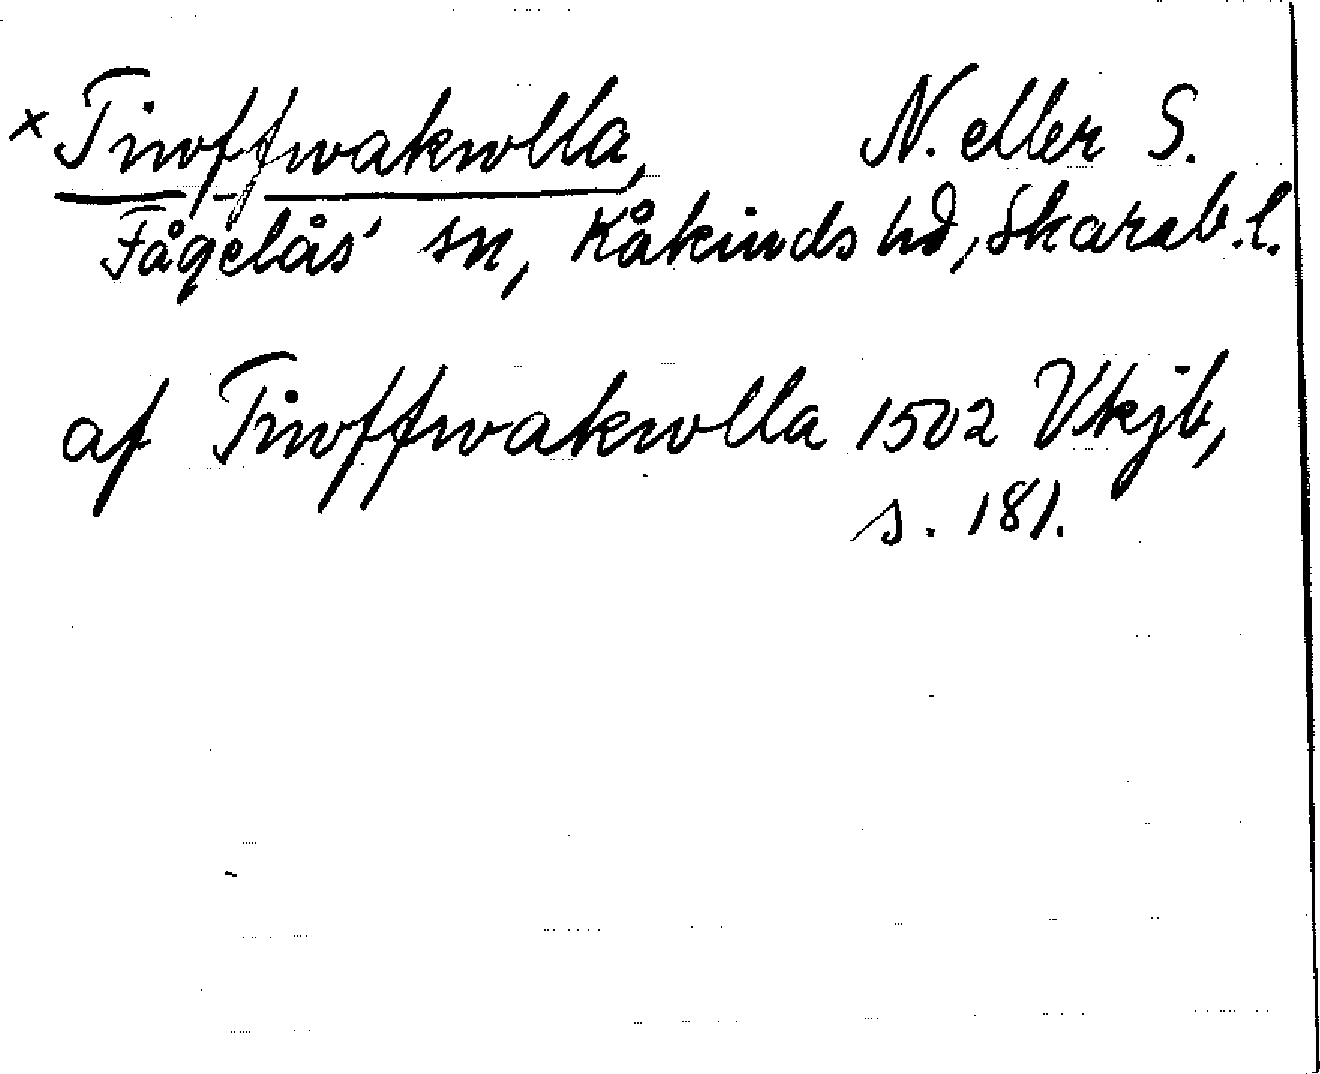 x Tiwffwakwlla, N. eller S.
Fågelås' sn, Kåkinds hd, Skarab. l.
af Tiwffwakwlla 1502 Vkjb,
s. 181.